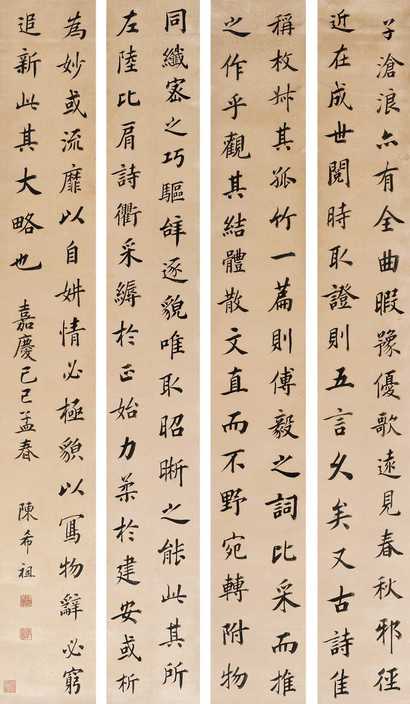 子滄浪亦有全曲暇豫優歌遠見春秋邪徑
近在成世閱時取證則五言久矣又古詩佳
稱枚叔其孤竹一篇則傅毅之詞比采而推
之作乎觀其結體散文直而不野宛轉附物
同纖密之巧驅辝逐貌唯取昭晰之能此其所
左陸比肩詩衢采縟於正始力柔於建安或析
為妙或流靡以自妍情必極貌以寫物辭必窮
追新此其大略也 嘉慶己巳孟春 陳希祖